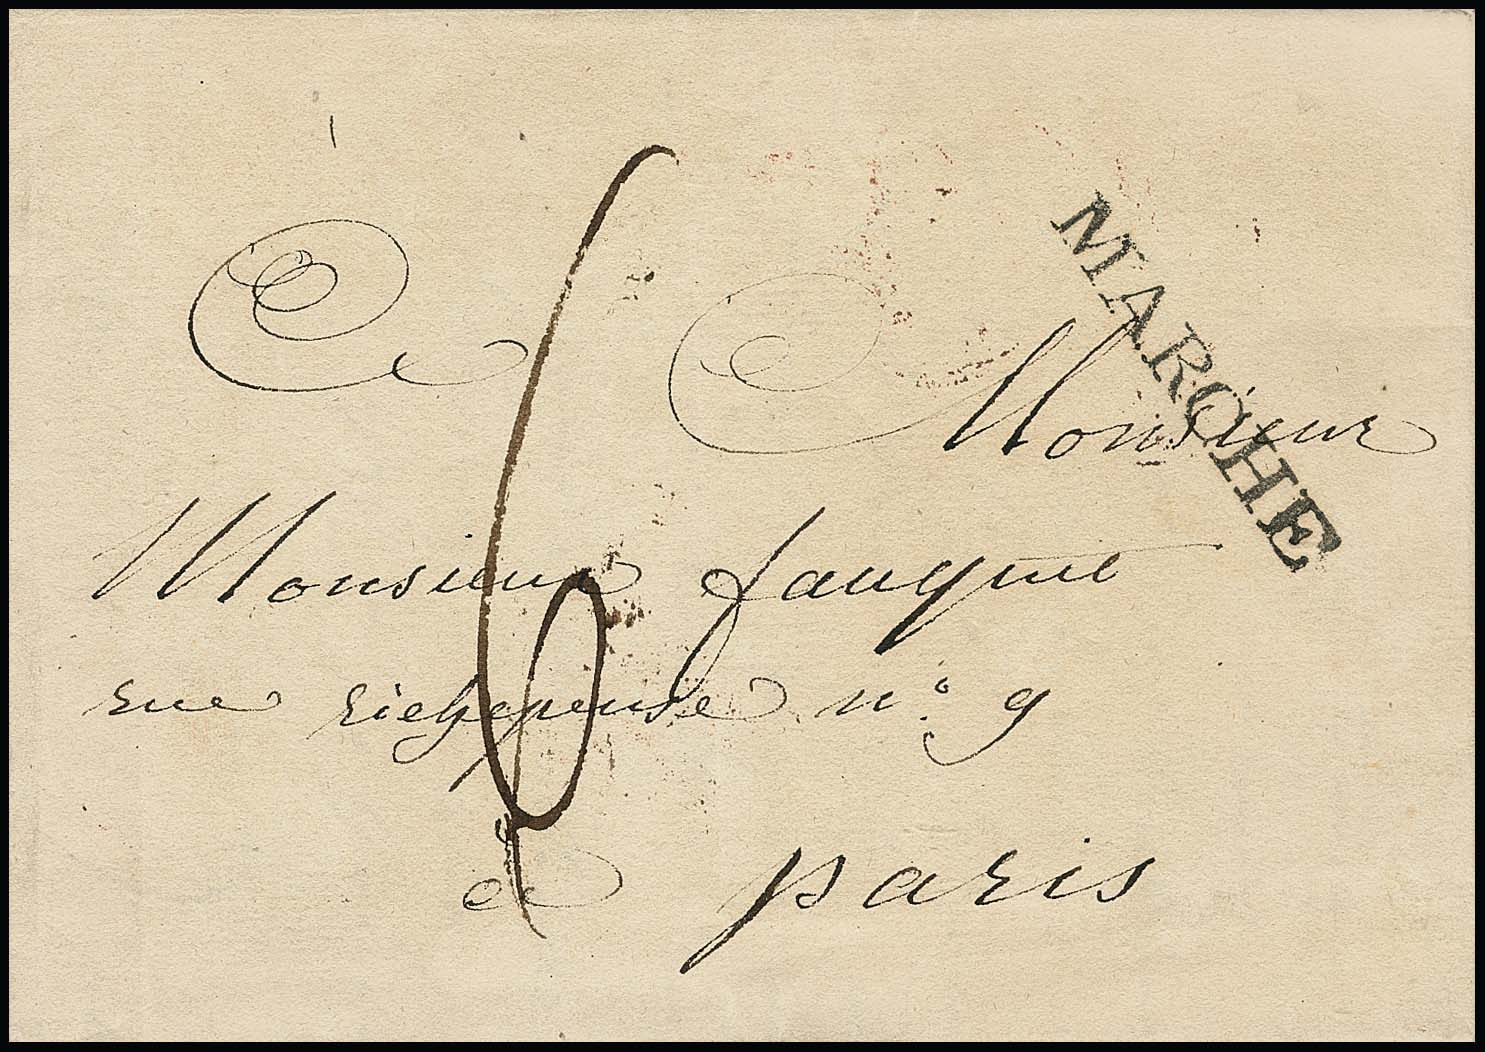 MARCHE
A Monsieur
Monsieur fauquet
rue richepense n.º 9
a paris
6